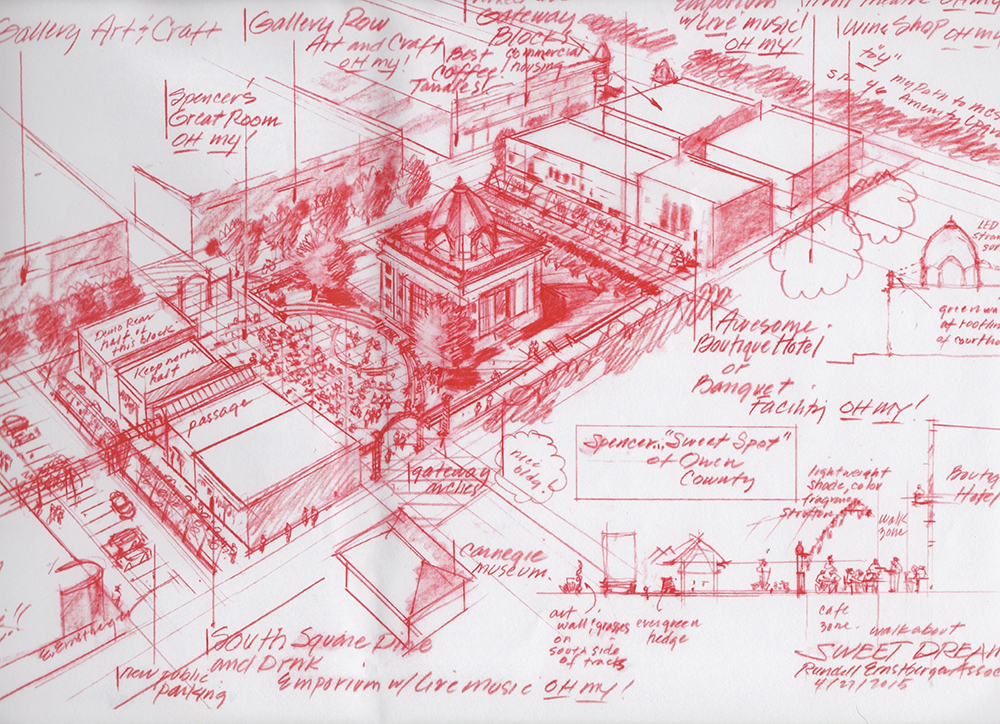 Gallery Art & Craft
Gallery Row
Art and Craft
OH my!
Gateway
Blocks
commercial
housing
Best
Coffee!
Tamales!
Emporium
w/Live music!
OH my!
Wine Shop OH my
"to y"
SR 46
my path to McC
Amenity
Spencer's
Great Room
OH my!
LED
green wa
at roofline
of courtho
Demo Rear
half of
this block
Keep north
half
passage
Awesome
Boutique Hotel
or
Banquet
Facility OH my!
Spencer.. "Sweet Spot"
of Owen
County
nice
bldg.
gateway
arches
lightweight
shade, color
fragrance
walk
zone
Boutiq
Hotel
Carnegie
museum.
art
wall
grasses
on
south side
of tracks
evergreen
hedge
cafe
zone.
walkabout
SWEET DREAM
Rundell Ernstberger Assoc
4/27/2015
E. Ernstberger
South Square Dine
and Drink
Emporium w/Live music OH my!
new public
parking